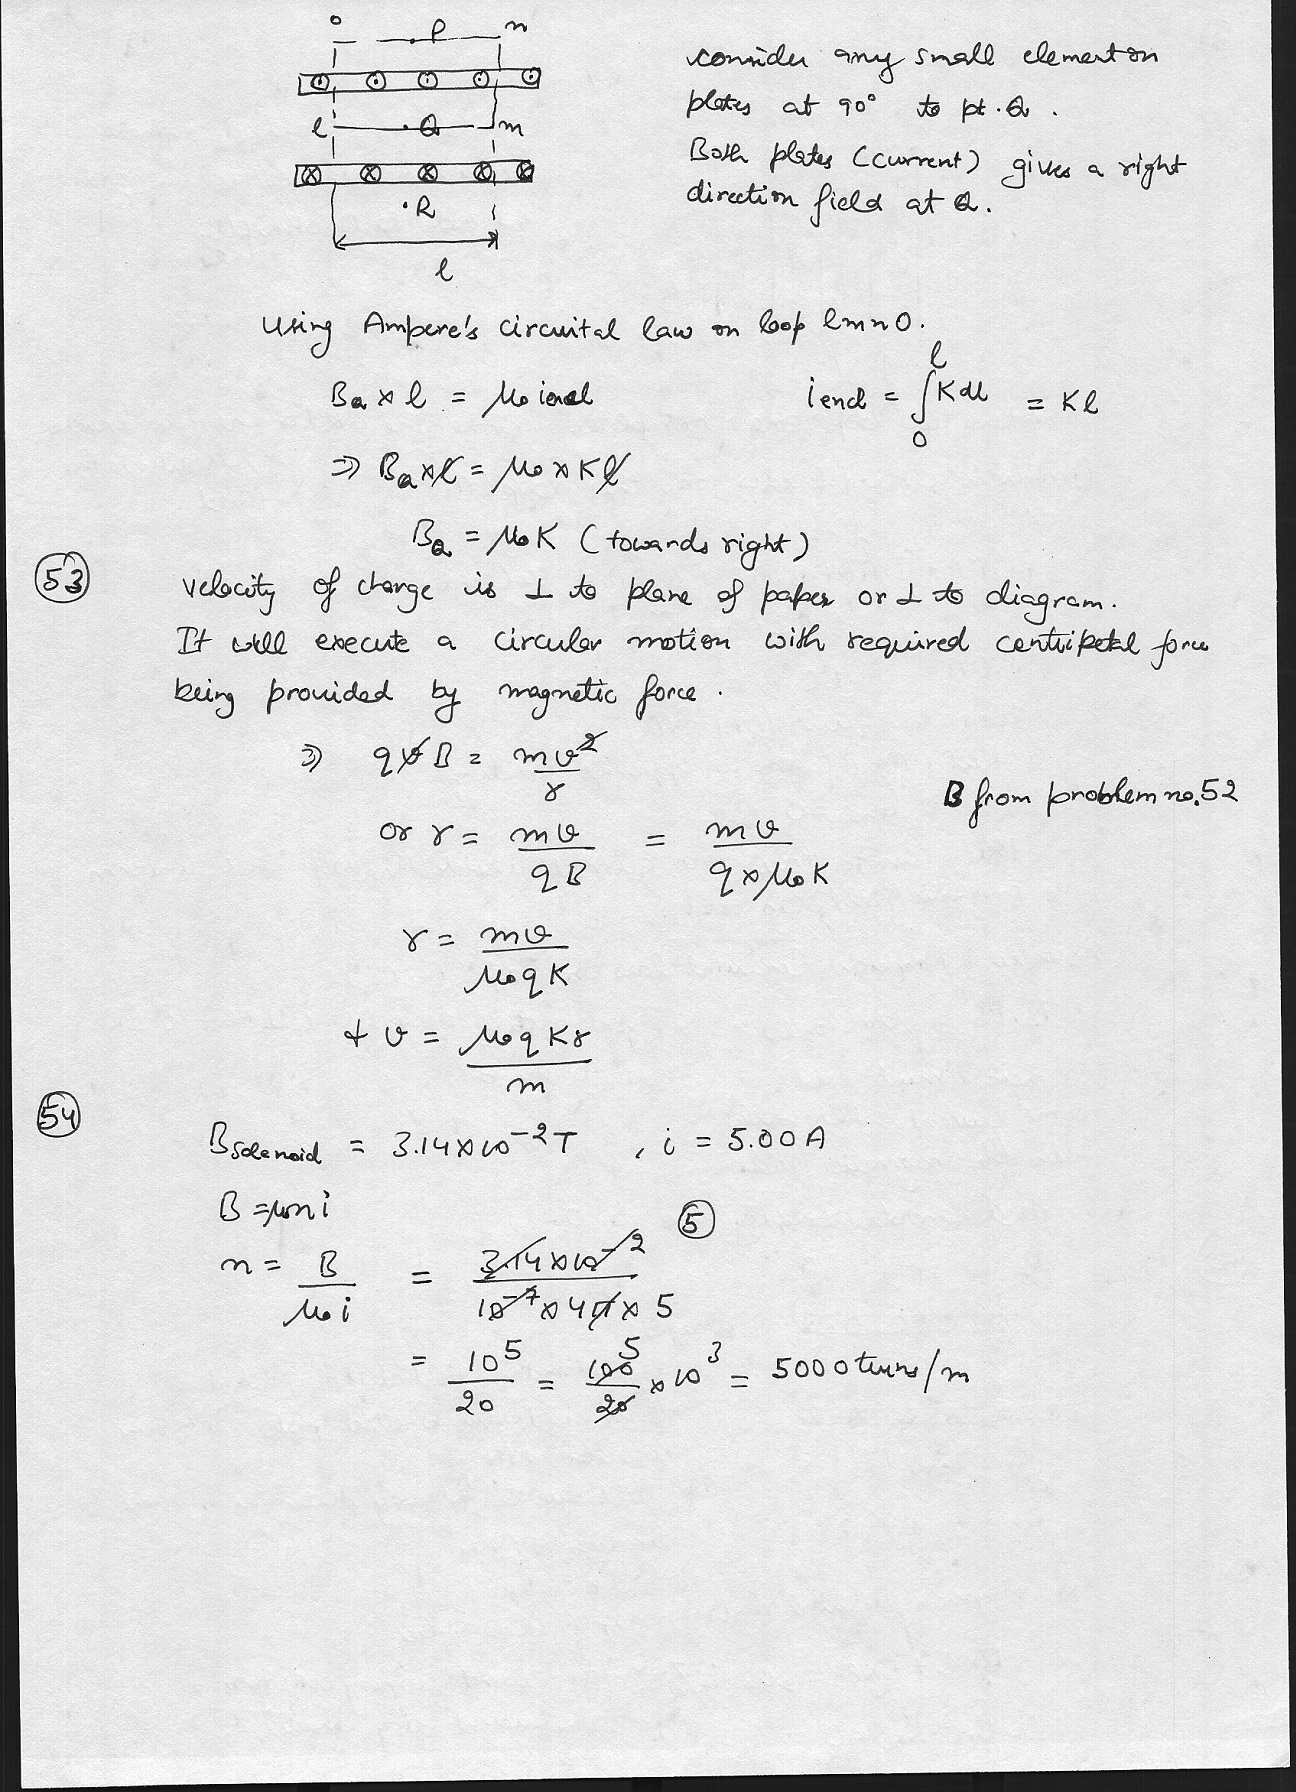 o P n
l Q m
R
l
consider any small element on
plates at 90° to pt. Q .
Both plates (current) gives a right
direction field at Q.
Using Ampere's circuital law on loop lmnO.
BQ × l = μ₀ iencl
iencl = ∫₀ˡ K dl = Kl
⇒ BQ × l = μ₀ × K l
BQ = μ₀K (towards right)
53
velocity of charge is ⊥ to plane of paper or ⊥ to diagram.
It will execute a circular motion with required centripetal force
being provided by magnetic force .
⇒ qvB = mv²/r
B from problem no. 52
or r = mv/qB = mv/q×μ₀K
r = mv/μ₀qK
& v = μ₀qKr/m
54
Bsolenoid = 3.14×10⁻² T , i = 5.00 A
B = μ₀ni
5
n = B/μ₀i = 3.14×10⁻²/10⁻⁷×4π×5
= 10⁵/20 = 100/20 5 ×10³ = 5000 turns/m